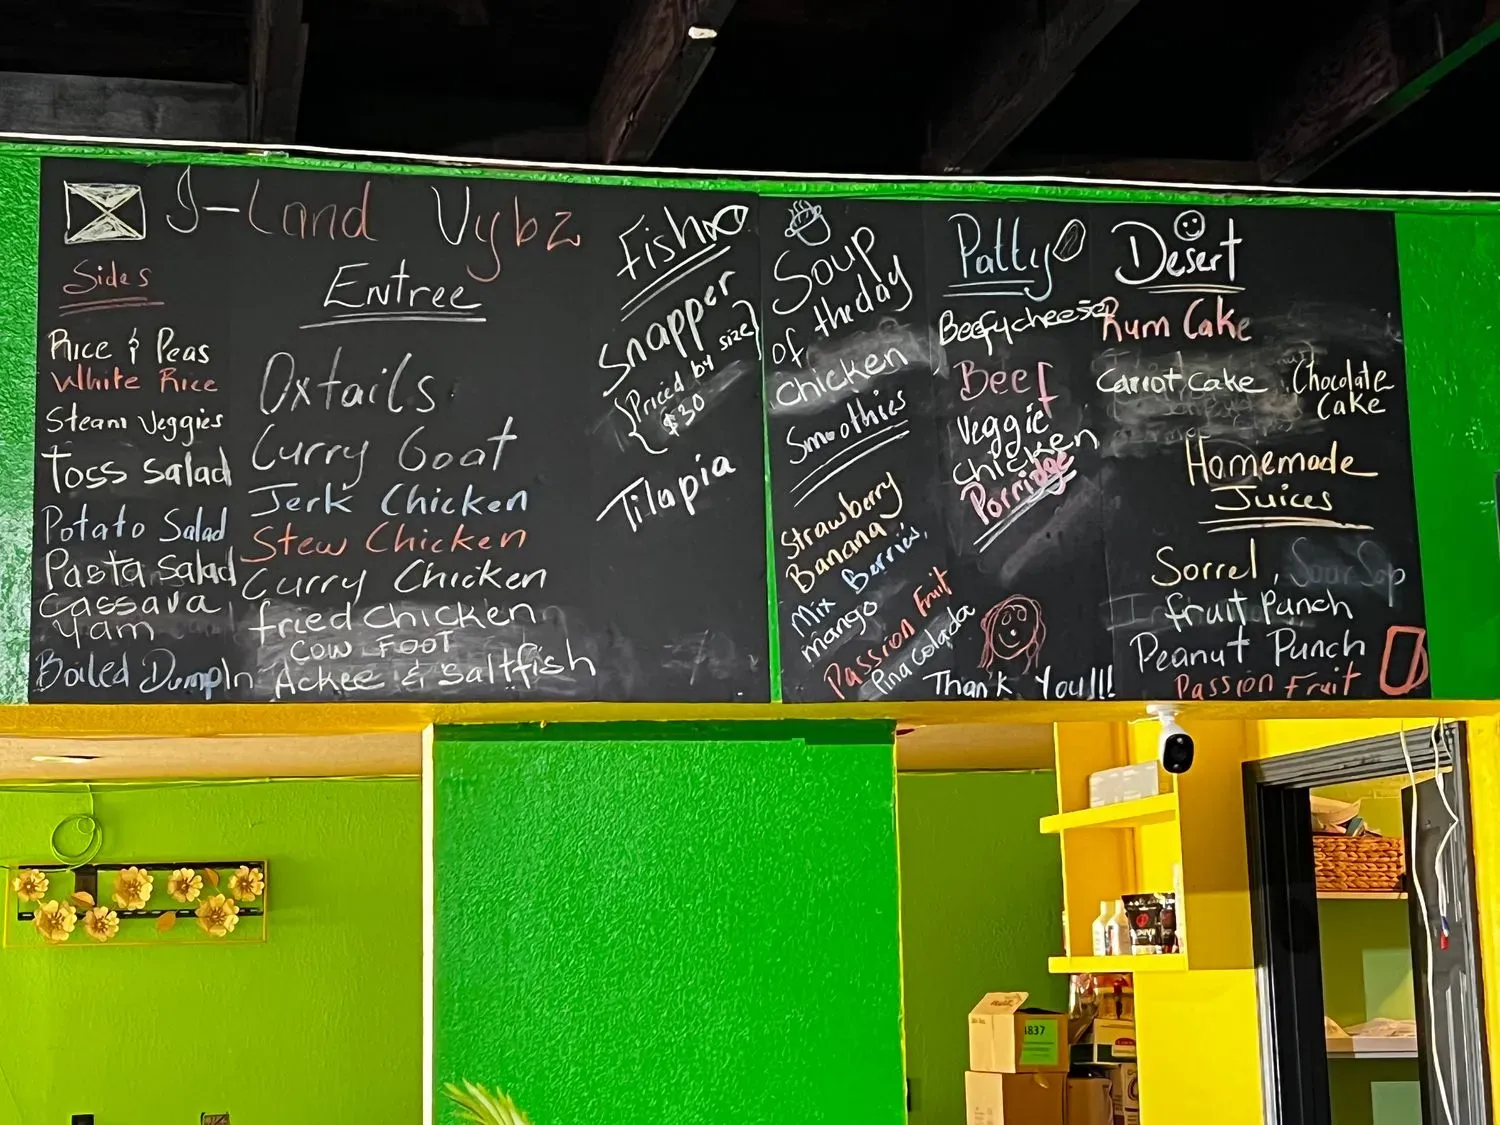 I-Land Vybz
Sides
Rice & Peas
White Rice
Steam Veggies
Toss Salad
Potato Salad
Pasta Salad
Cassava
Yam
Boiled Dumpln
Entree
Oxtails
Curry Goat
Jerk Chicken
Stew Chicken
Curry Chicken
fried chicken
COW FOOT
Ackee & Saltfish
Fish
Snapper
{Priced by size}
{$30
Tilapia
Soup
of the day
Chicken
Smoothies
Strawberry
Banana
Mix Berries
mango
Passion Fruit
Pina colada
Patty
Beefycheese
Beef
Veggie
Chicken
Porridge
Thank You!!!
Desert
Rum Cake
Carrot Cake
Chocolate
Cake
Homemade
Juices
Sorrel, Sour Sop
fruit Punch
Peanut Punch
Passion Fruit
837